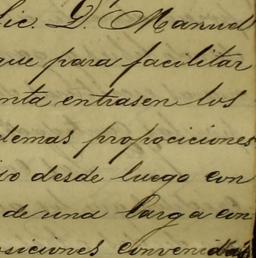 lic. D. Manuel
que para facilitar
nta entrasen los
demas propociciones
io desde luego con
de una larga con
osiciones convenidas